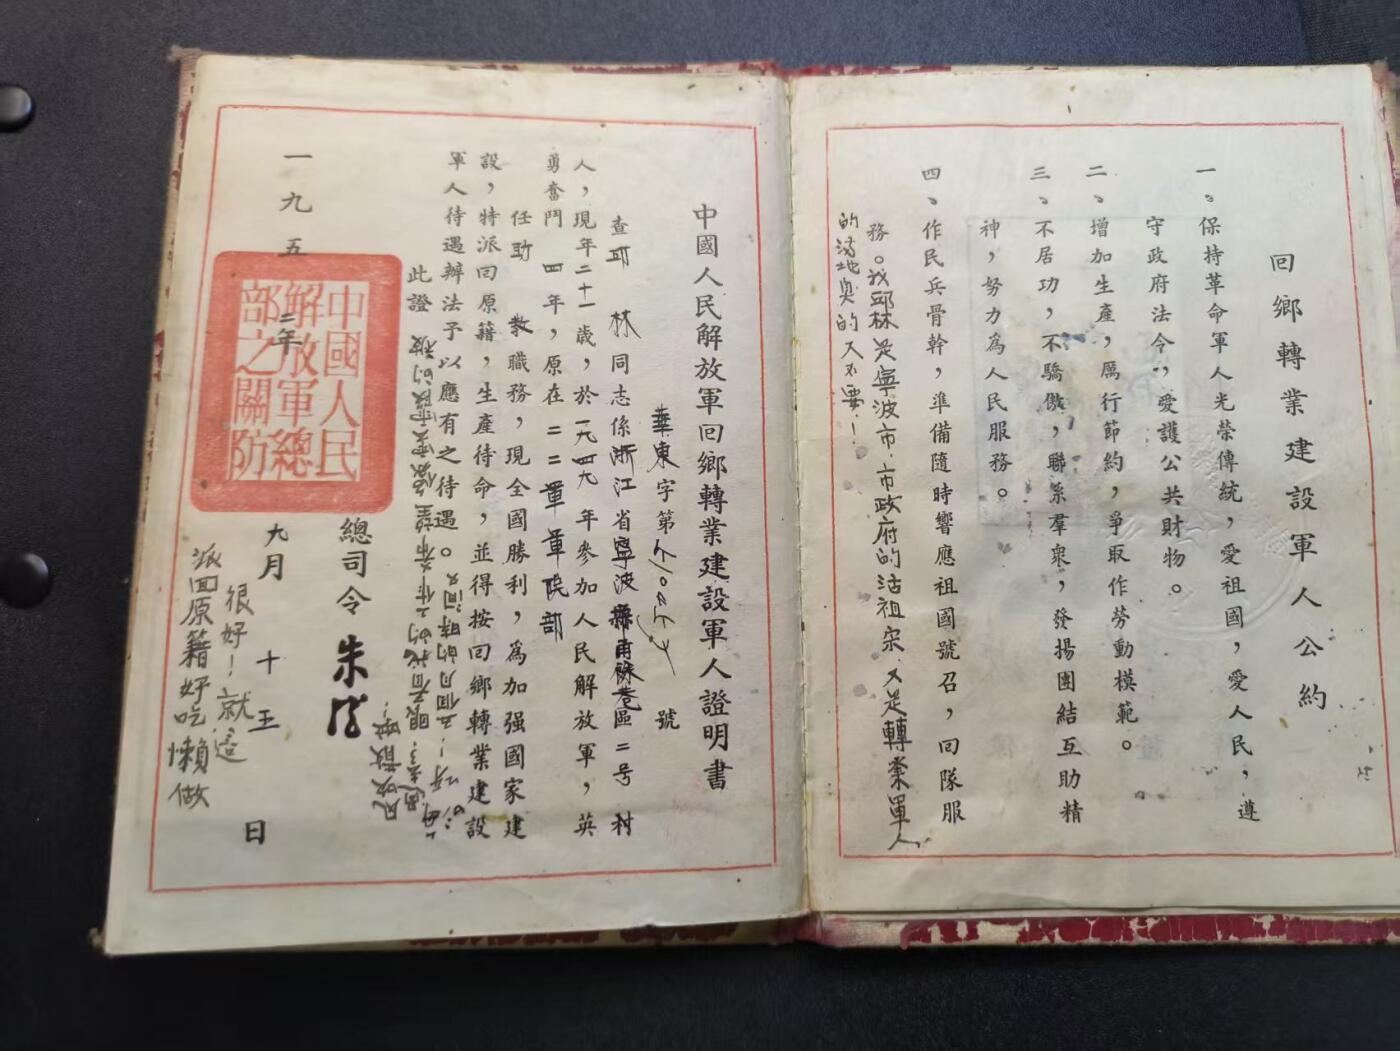 回鄉轉業建設軍人公約
一、保持革命軍人光榮傳統，愛祖國，愛人民，遵
守政府法令，愛護公共財物。
二、增加生產，厲行節約，爭取作勞動模範。
三、不居功，不驕傲，聯系羣衆，發揚團結互助精
神，努力為人民服務。
四、作民兵骨幹，準備隨時響應祖國號召，回隊服
務。我邱林是寧波市市政府的活祖宗又是轉業軍人
的又不要！
中國人民解放軍回鄉轉業建設軍人證明書
華東字第 號
查邱林同志係浙江省寧波縣 區二号村
人，現年二十一歲，於一九四九年參加人民解放軍，英
勇奮鬥四年，原在二二軍軍院部
任助教職務，現全國勝利，為加强國家建
設，特派回原籍，生產待命，並得按回鄉轉業建設
軍人待遇辦法予以應有之待遇。
此證
五個月的時间
總司令朱德
中國人民
解放軍總
部之關防
一九五二年九月十五日
很好！就這
派回原籍好吃懶做